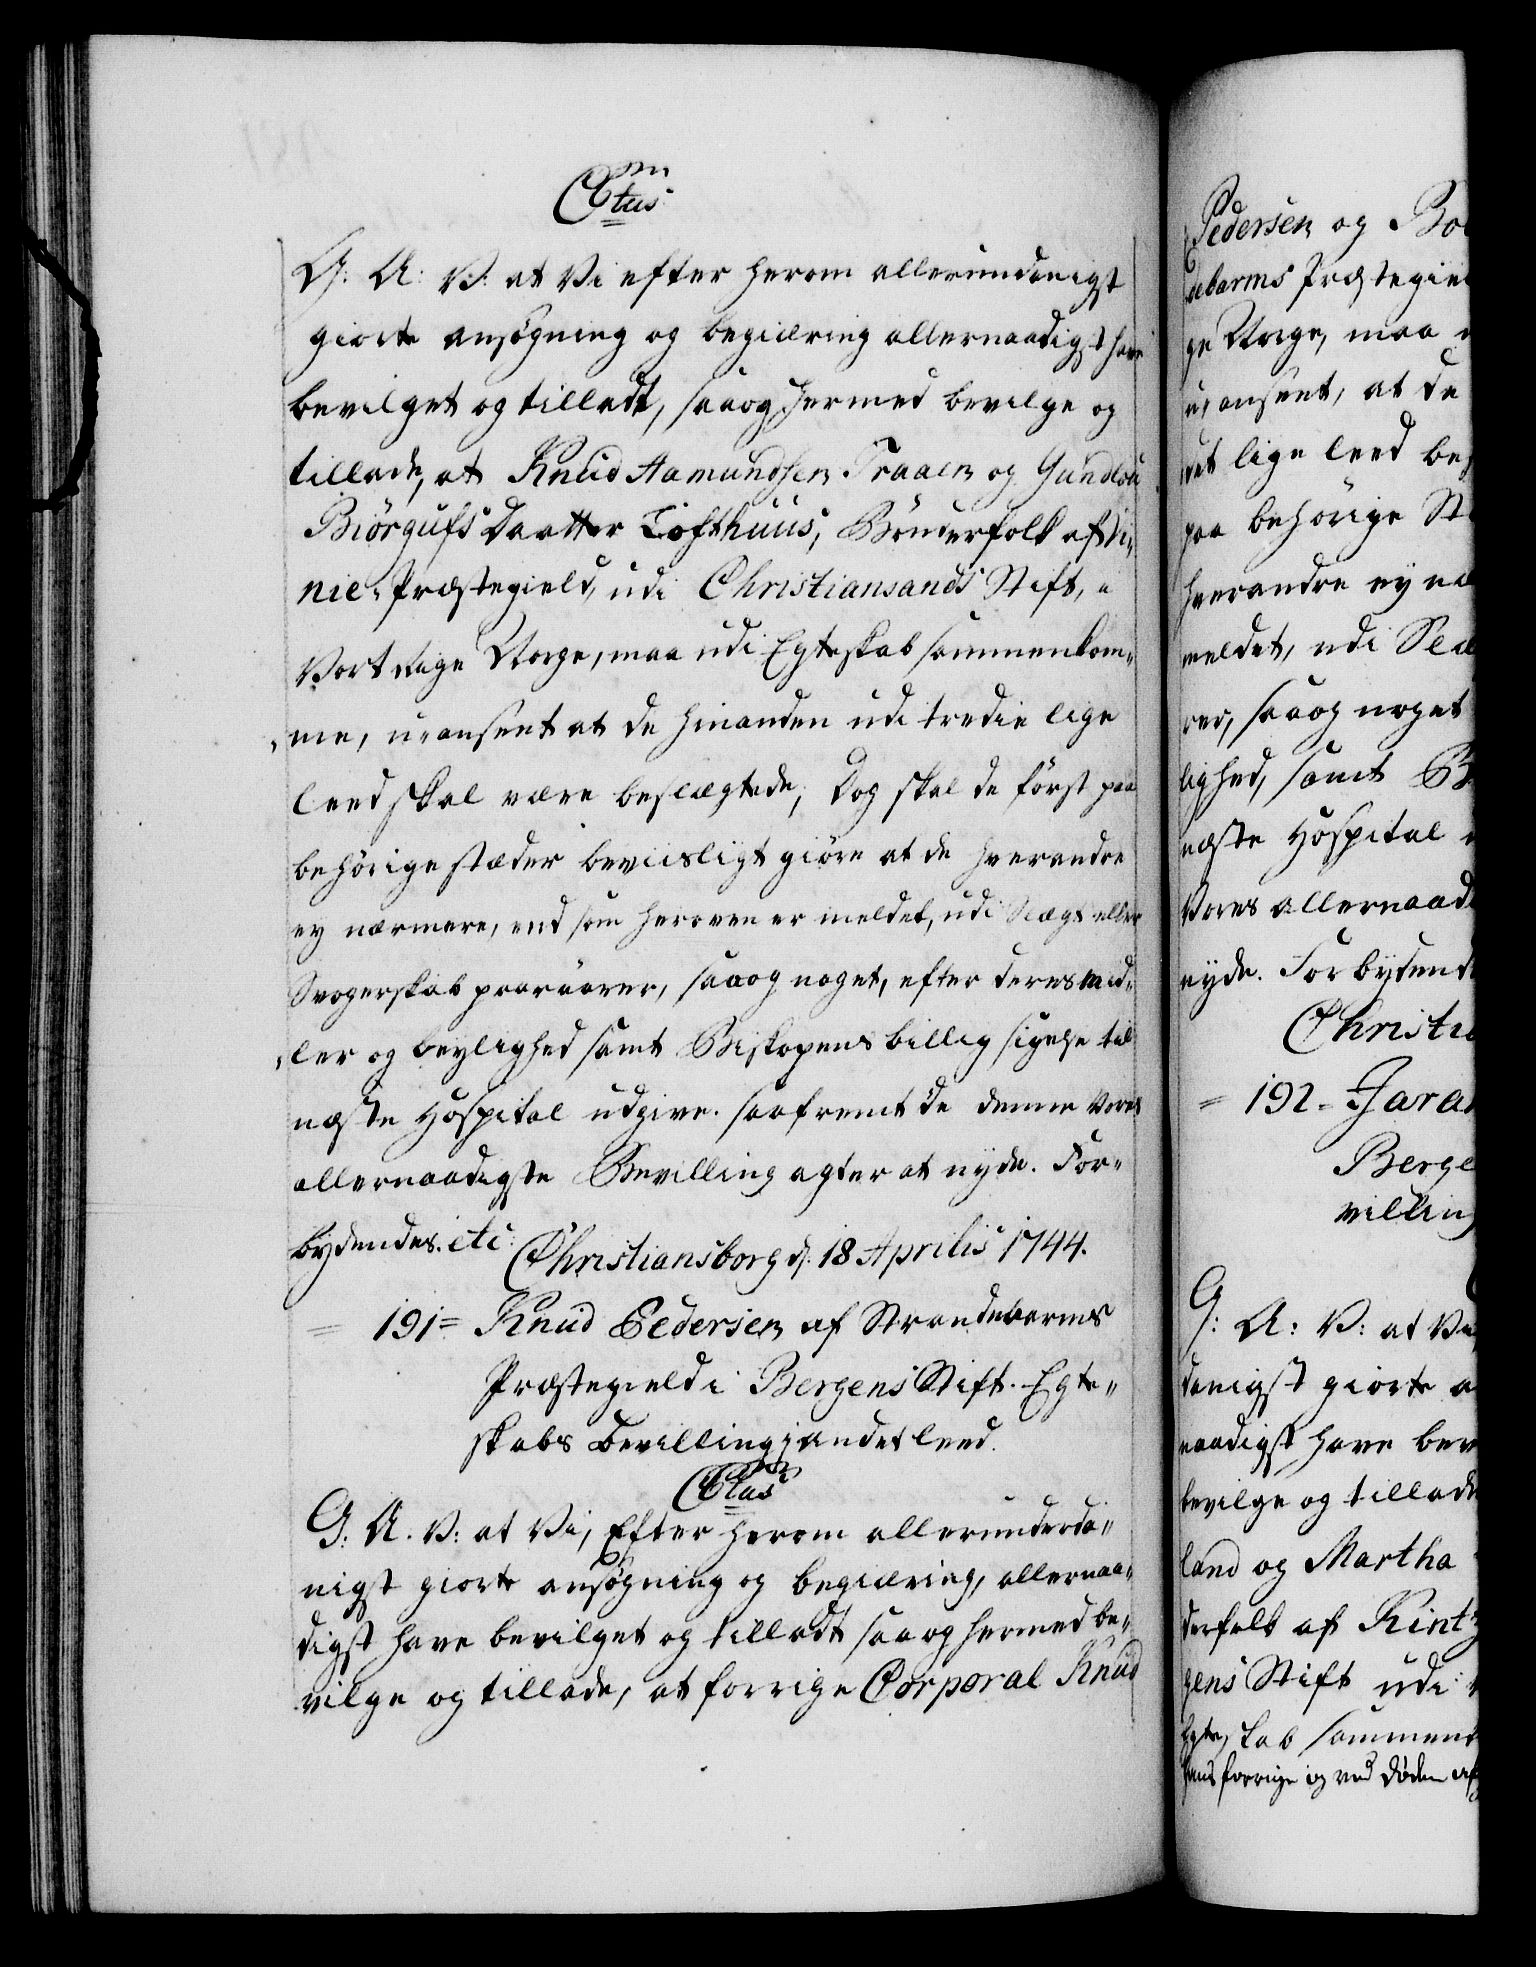 Ctus
G: A: V: at Vi efter herom allerundanigst
giorte ansøgning og begiæring allernaadigst have
bevilget og tilladt, saa og hermed bevilge og
tillade, at Knud Aamundsen Traaen og Gundlou
Biörgufs Daatter Lofthuus, Bönderfolk af Vi„
nie Præstegield, udi Christiansands Stift, i
Vort Rige Norge, maa udi Egteskab sammenkom„
„me, u-anseet at de hinanden udi tredie lige
leed skal være beslægtede; Dog skal de först paa
behörige stæder beviisligt giöre at de hverandre
ey nærmere, end som heroven er meldet, udi Slægt eller
Svogerskab paarörer, saa og noget, efter deres mid„
„ler og leylighed samt Biskopens billig sigelse til
næste Hospital udgive. saafremt de denne Vores
allernaadigste Bevilling agter at nyde. For„
bydendes. etc: Christiansborg d. 18 Aprilis 1744.
= 191 = Knud Pedersen af Strandebarms
Præstegield i Bergens Stift. Egte„
skabs Bevilling i andet leed.
Ctus
G: A. V: at Vi, Efter herom allerunderda„
nigst giorte ansögning og begiæring, allernaa„
digst have bevilget og tilladt saa og hermed be„
vilge og tillade, at forrige Corporal Knud
Pedersen og
debarms Præstegiel
ge Norge, maa
u, anseet, at de
det lige leed
paa behörige
hverandre ey
meldet, udi
rer, saa og noget
lighed, samt
næste Hospital
Vores allernaad
nyde. Forbydend
Christi
= 192 =
Berge
villing
G: A: V: at Vi
danigst giorte
naadigst have bev
bevilge og tillade
land og Martha
derfolk af
gens Stift udi
Egteskab sammen
hans forrige og ved döden